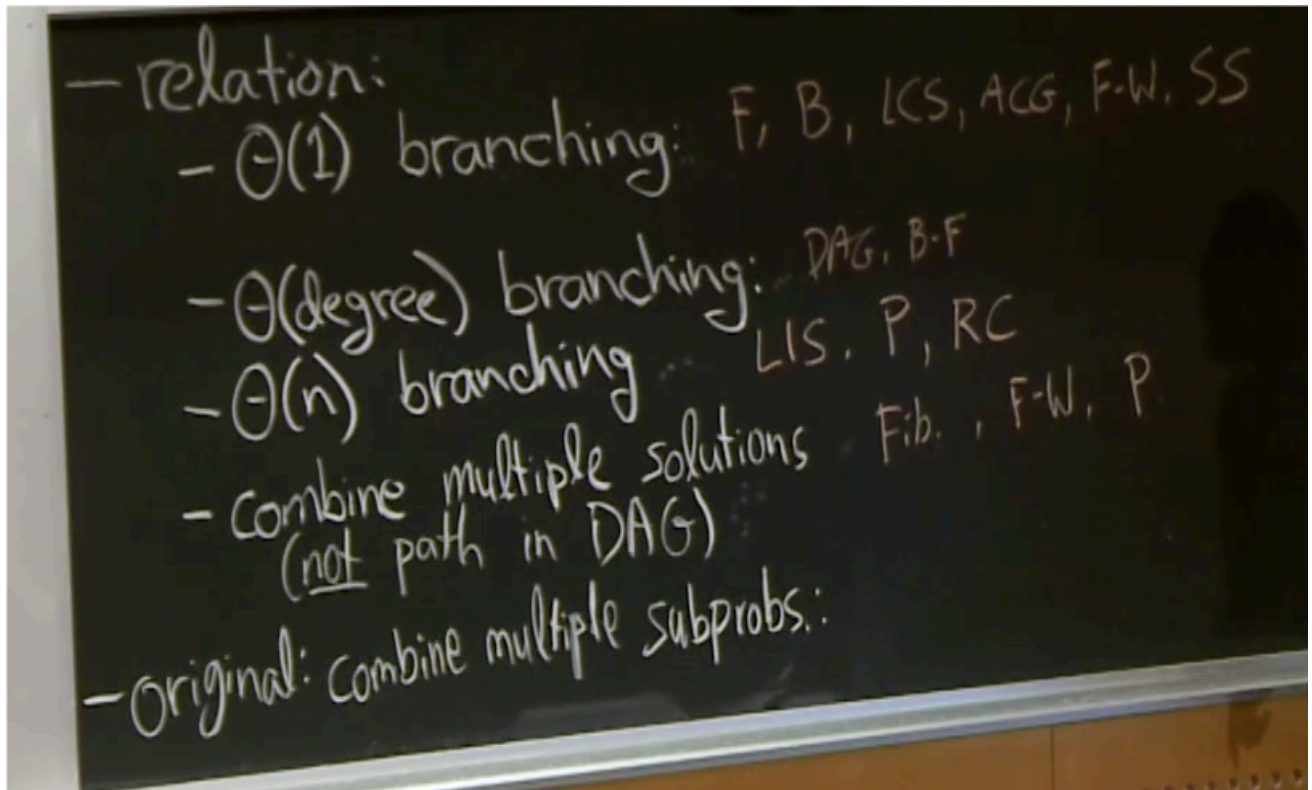 - relation:
- Θ(1) branching: F, B, LCS, ACG, F-W, SS
- Θ(degree) branching: DAG, B-F
- Θ(n) branching LIS, P, RC
- combine multiple solutions Fib., F-W, P
(not path in DAG)
- original: combine multiple subprobs.: